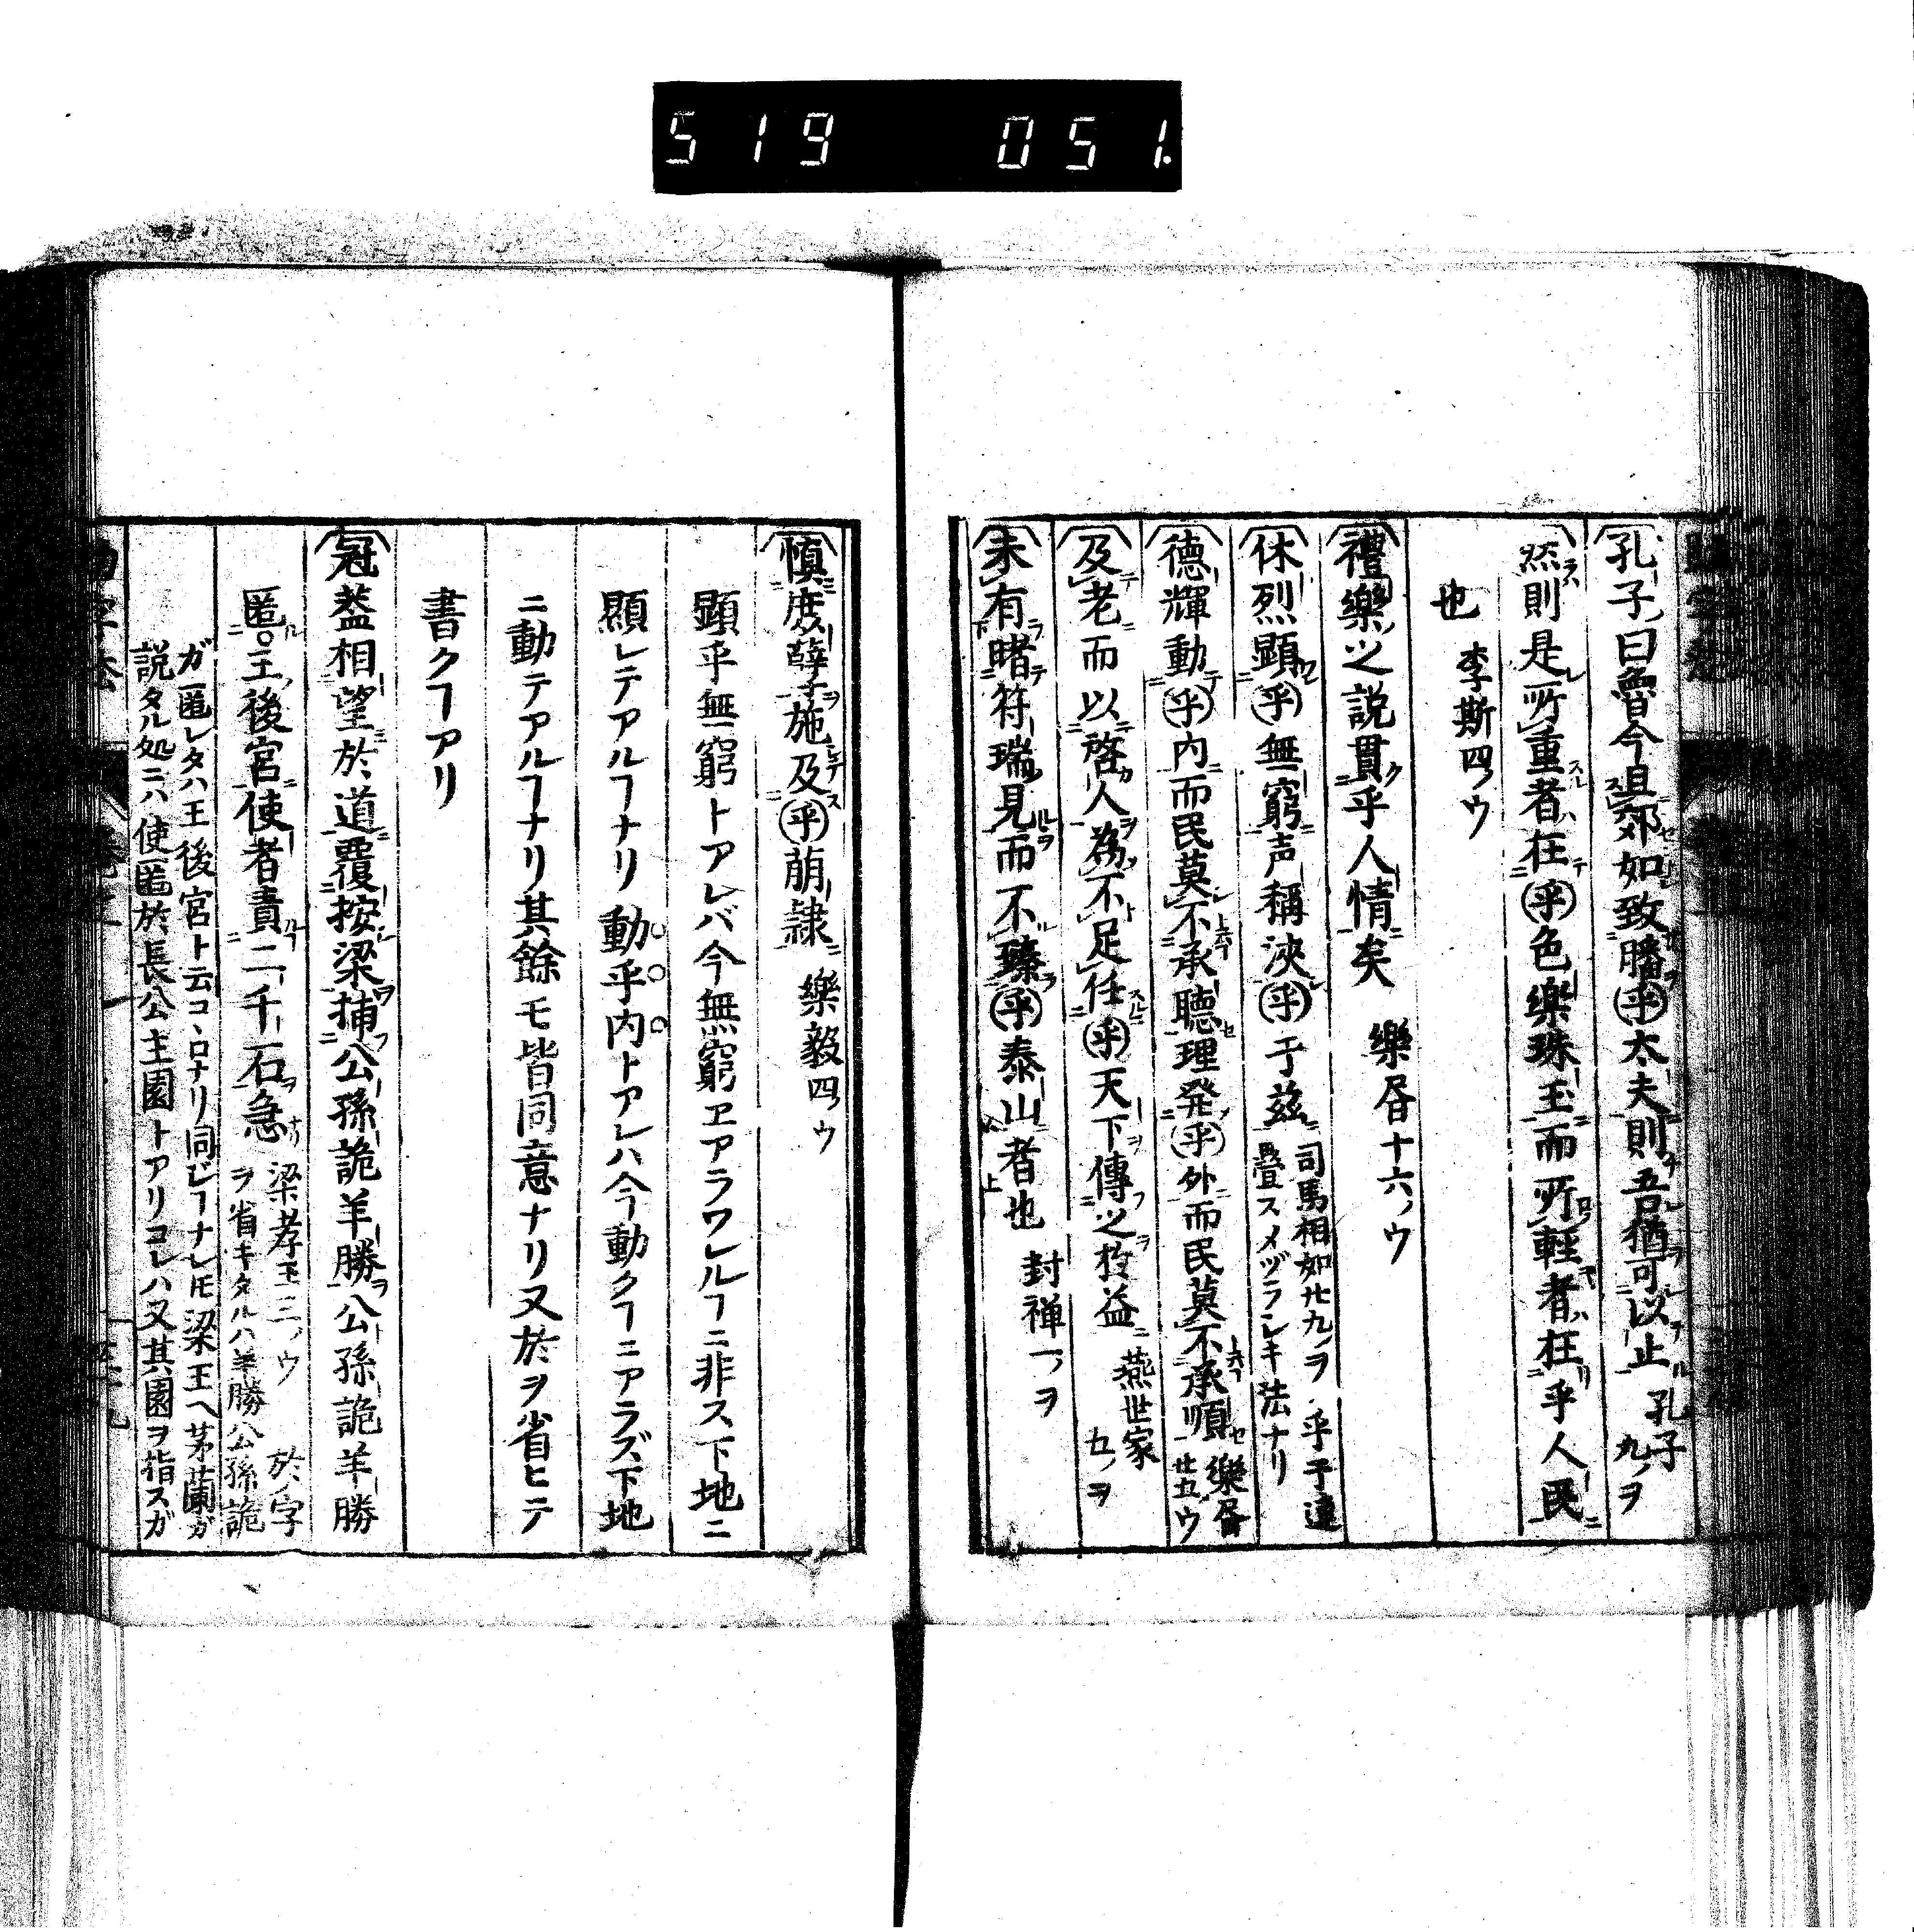 519 051.
孔子曰魯今且郊如致膰乎大夫則吾猶可以止 孔子九ノヲ
然則是所重者在乎色樂珠玉而所輕者在乎人民
也 李斯四ノウ
禮樂之説貫乎人情矣 樂昏十六ノウ
休烈顕乎無窮声稱浹乎于茲 司馬相如廿九ノヲ 乎于連
疊スメヅラシキ法ナリ
德輝動乎内而民莫不承聽理発乎外而民莫不承順 樂昏廿五ノウ
及老而以啓人為不足任乎天下傳之於益 燕世家五ノヲ
未有睹符瑞見而不臻乎泰山者也 封禅一ノヲ
慎庶孽施及乎萠隷 樂毅四ノウ
顕乎無窮トアレバ今無窮ヱアラワレルヿニ非ス下地ニ
顯レテアルヿナリ動乎内トアレハ今動クヿニアラズ下地
ニ動テアルヿナリ其餘モ皆同意ナリ又於ヲ省ヒテ
書クヿアリ
冠蓋相望於道覆按梁捕公孫詭羊勝公孫詭羊勝
匿王後宮使者責二千石急 梁孝王三ノウ 於ノ字
ヲ省キタルハ羊勝公孫詭
ガ匿レタハ王後宮ト云コヽロナリ同ジヿナレ𪜈梁王ヘ茅蘭ガ
説タル処ニハ使匿於長公主園トアリコレハ又其園ヲ指スガ